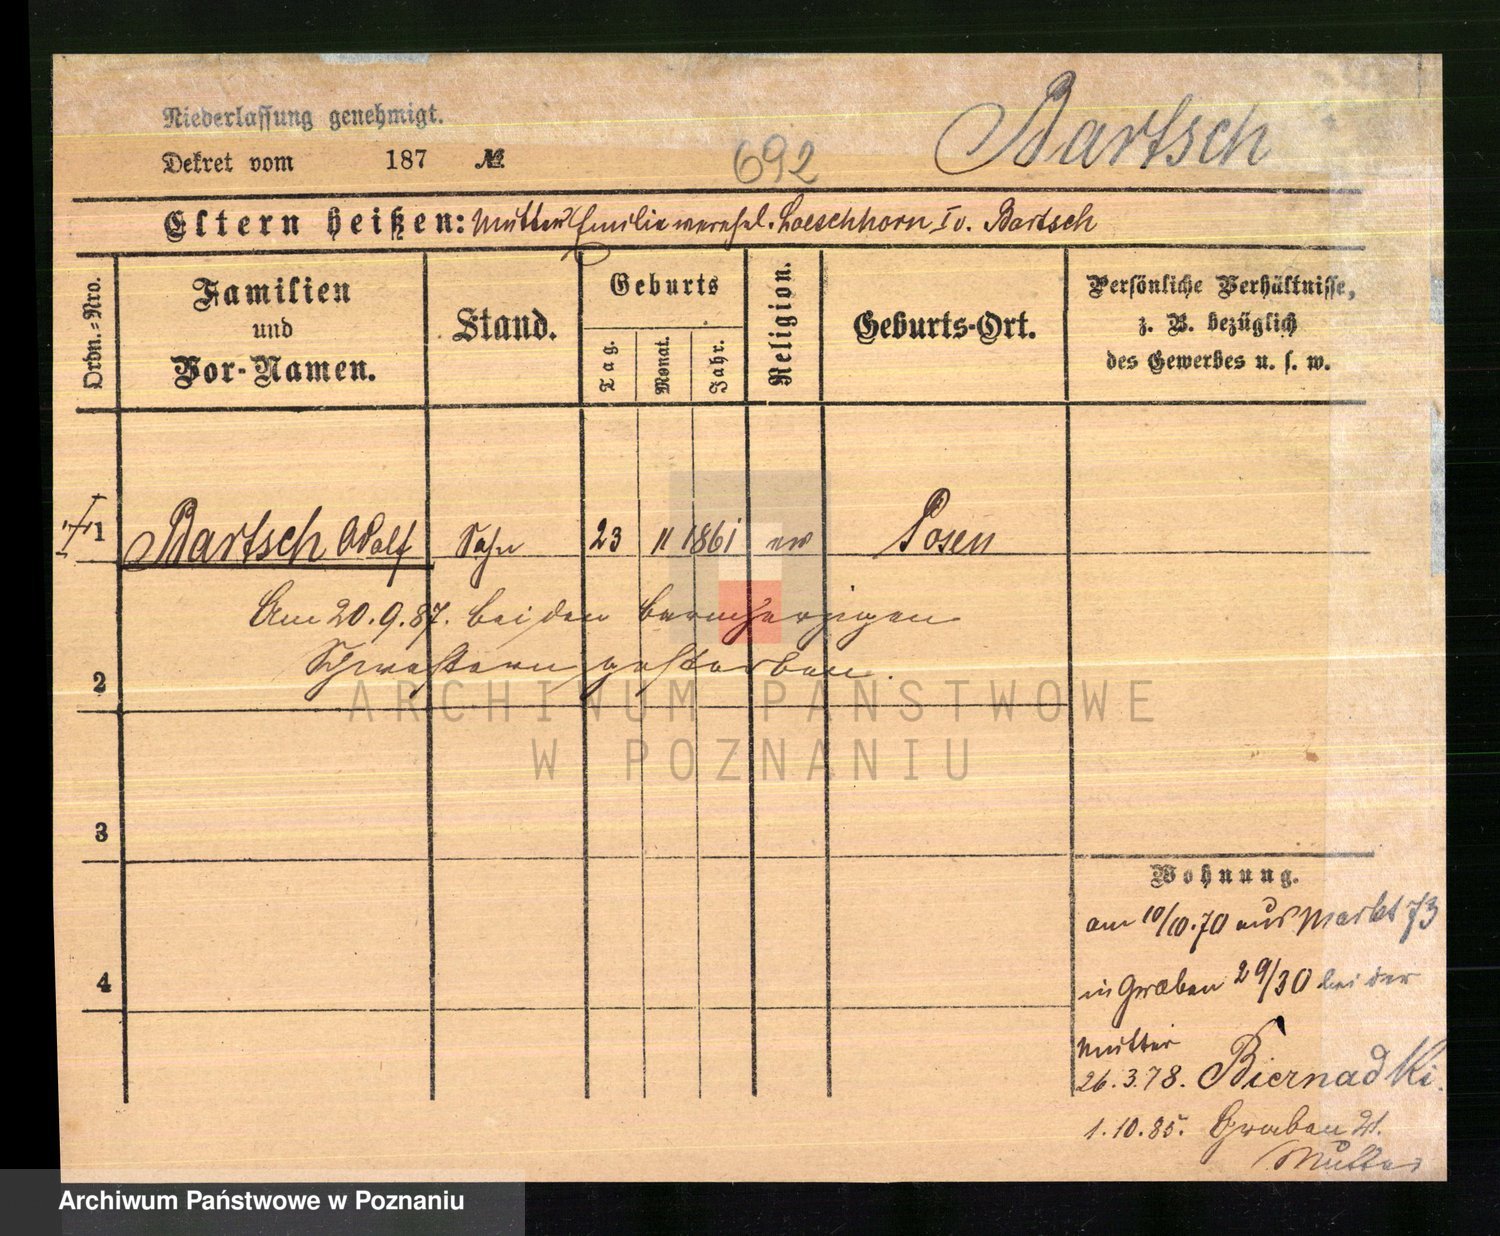 Niederlassung genehmigt.
Dekret vom 187 №
692
Bartsch
Eltern heißen: Mutter Emilie verehel. Loeschhorn I v. Bartsch
Ordn.-Nro.
Familien
und
Vor-Namen.
Stand.
Geburts
Tag.
Monat.
Jahr.
Religion.
Geburts-Ort.
Persönliche Verhältnisse,
z. B. bezüglich
des Gewerbes u. s. w.
1 Bartsch Adolf Sohn 23 11 1861 ev Posen
Am 20.9.87. bei den barmherzigen
2 Schwestern gestorben.
ARCHIWUM PAŃSTWOWE
W POZNANIU
3
Wohnung.
am 10/10.70 aus Markt 73
4 in Graben 29/30 bei der
Mutter
26.3.78. Biernadki.
1.10.85. Graben 21.
Mutter
Archiwum Państwowe w Poznaniu